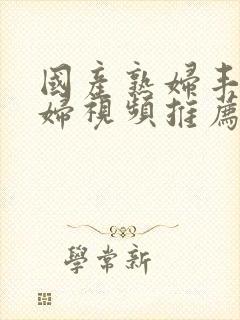 國產熟婦丰
婦視頻推薦
學常新